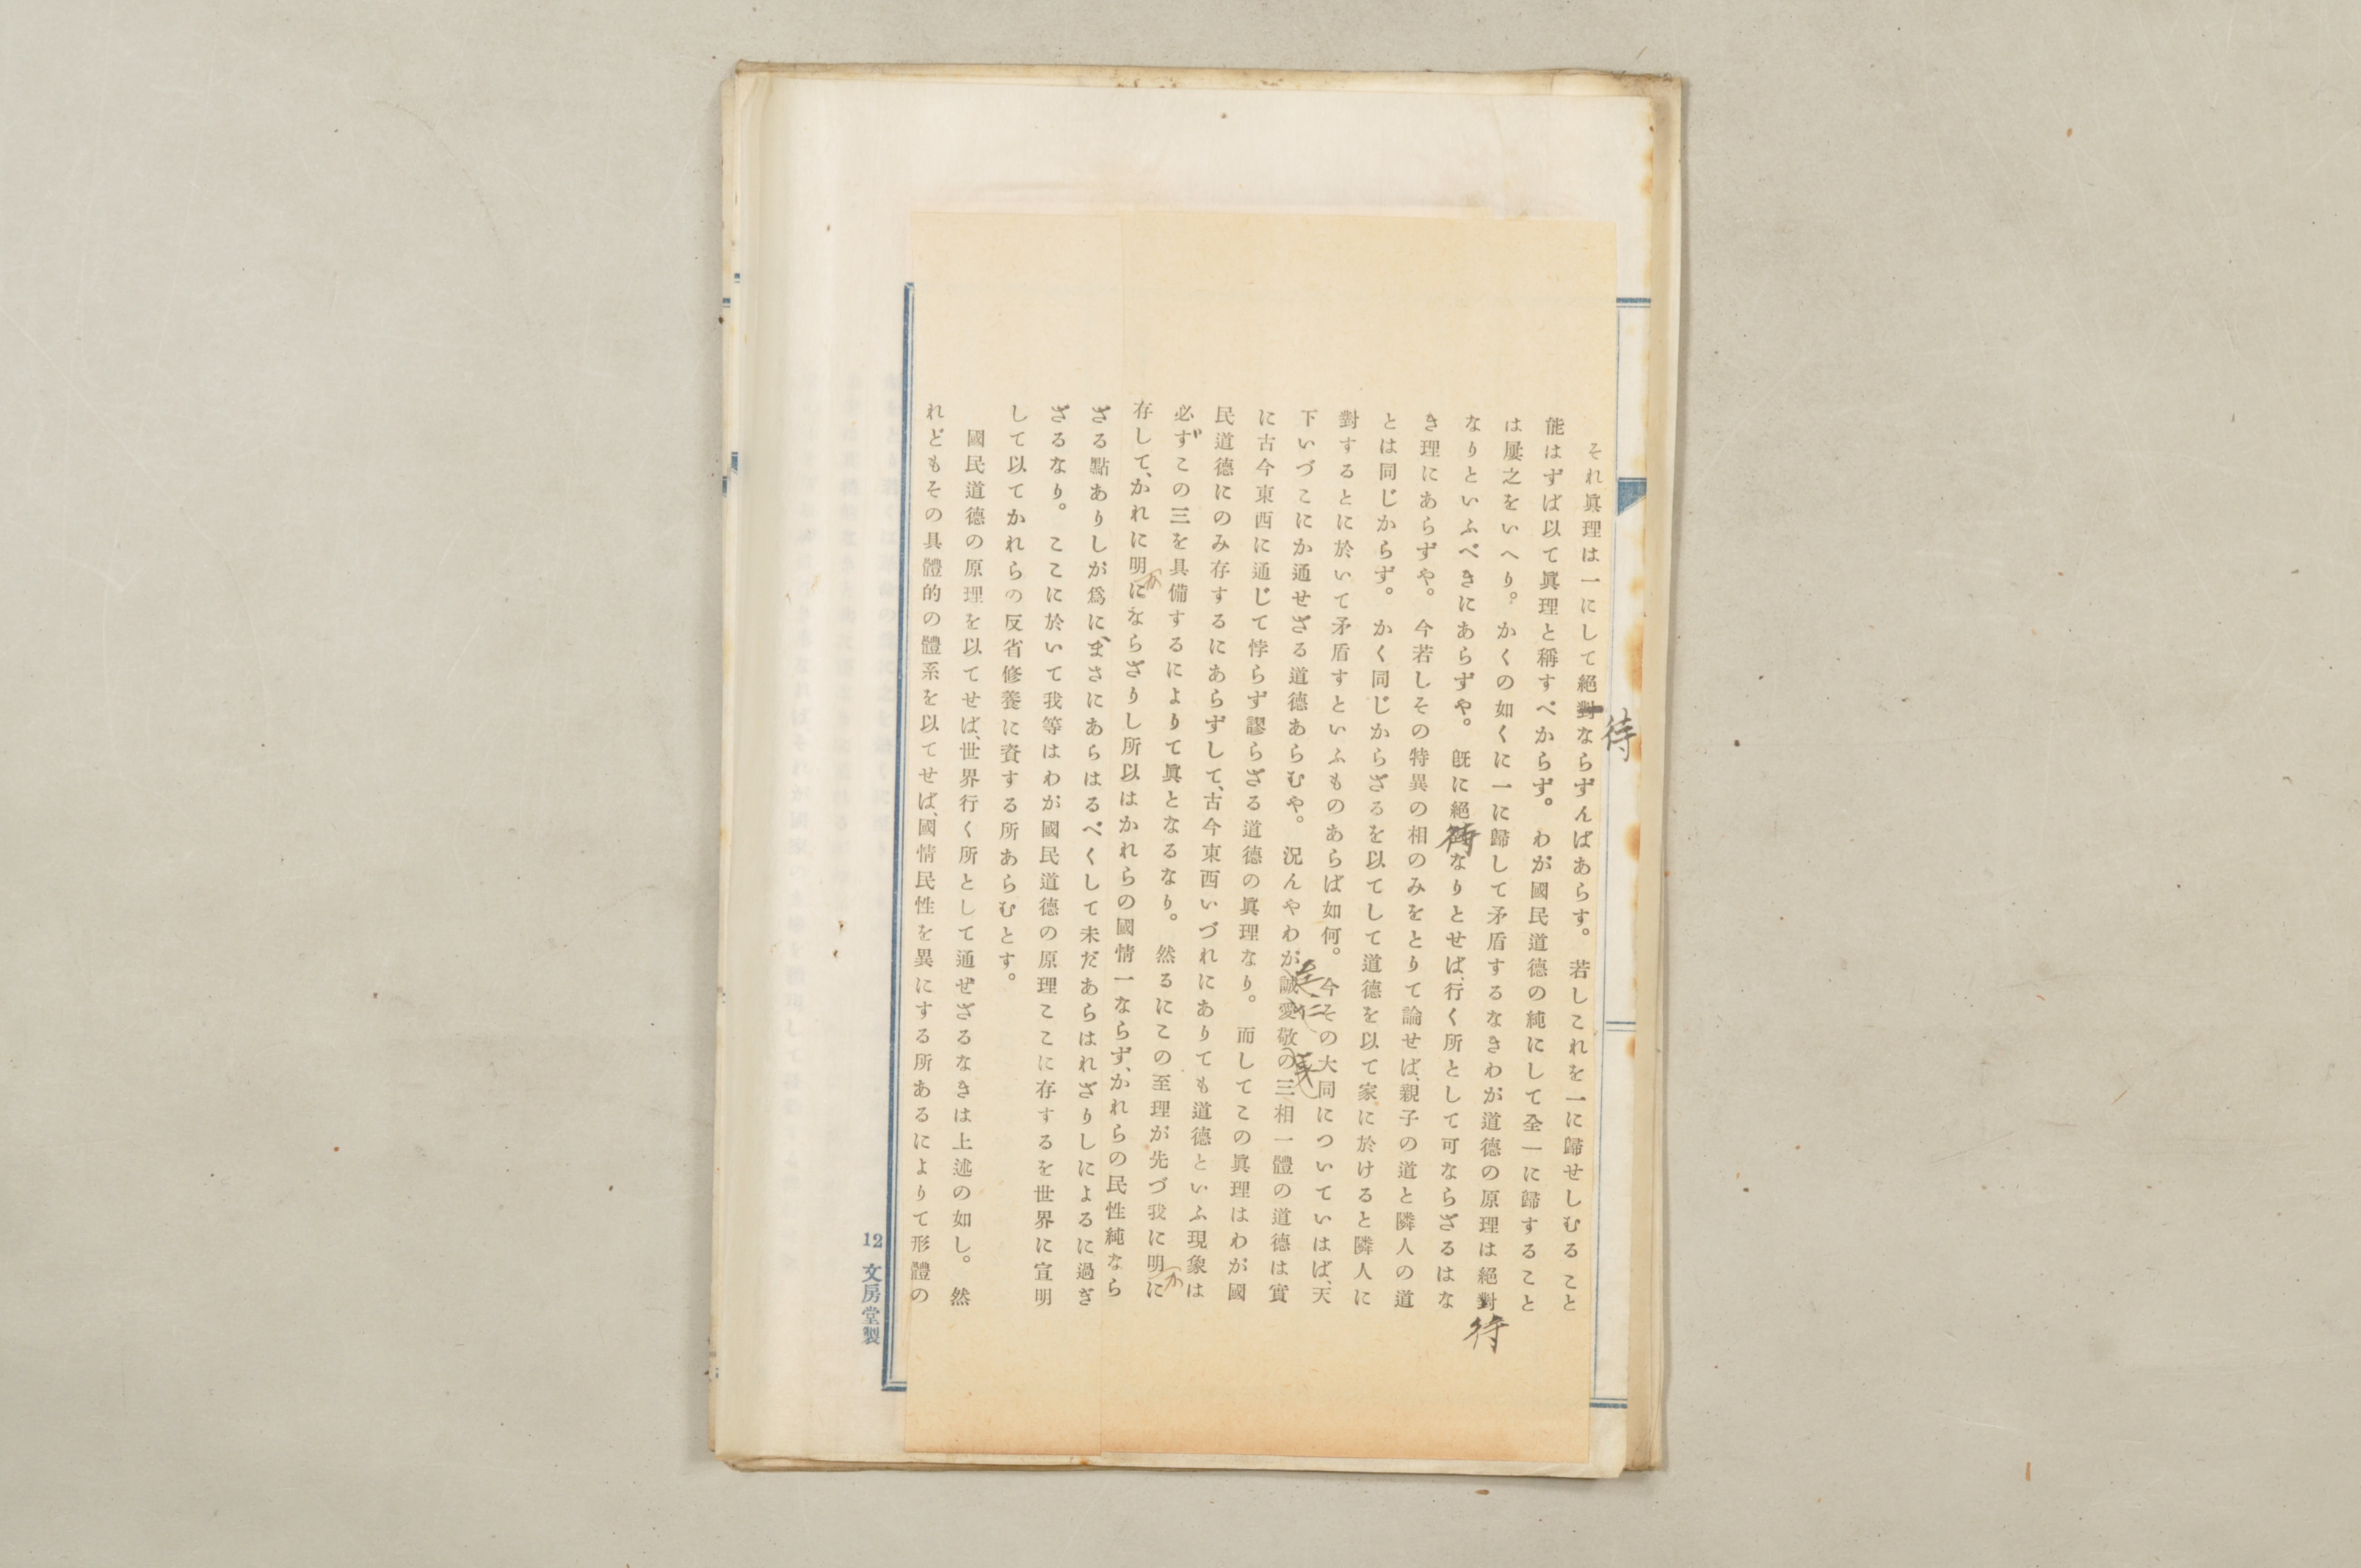 それ眞理は一にして絕對ならずんばあらす。若しこれを一に歸せしむること
待
能はずば以て眞理と稱すべからず。わが國民道德の純にして全一に歸すること
は屢之をいへり。かくの如くに一に歸して矛盾するなきわが道德の原理は絕對
待
なりといふべきにあらずや。旣に絕待なりとせば、行く所として可ならざるはな
き理にあらずや。今若しその特異の相のみをとりて論せば、親子の道と隣人の道
とは同じからず。かく同じからざるを以てして道德を以て家に於けると隣人に
對するとに於いて矛盾すといふものあらば如何。今その大同についていはば、天
下いづこにか通せざる道德あらむや。況んやわが誠愛敬の三相一體の道德は實
に古今東西に通じて悖らず謬らざる道德の眞理なり。而してこの眞理はわが國
民道德にのみ存するにあらずして、古今東西いづれにありても道德といふ現象は
必ずこの三を具備するによりて眞となるなり。然るにこの至理が先づ我に明に
か
存して、かれに明にならざりし所以はかれらの國情一ならず、かれらの民性純なら
か
ざる點ありしが爲に、まさにあらはるべくして未だあらはれざりしによるに過ぎ
ざるなり。ここに於いて我等はわが國民道德の原理ここに存するを世界に宣明
して以てかれらの反省修養に資する所あらむとす。
國民道德の原理を以てせば、世界行く所として通ぜざるなきは上述の如し。然
れどもその具體的の體系を以てせば、國情民性を異にする所あるによりて形體の
12 文房堂製